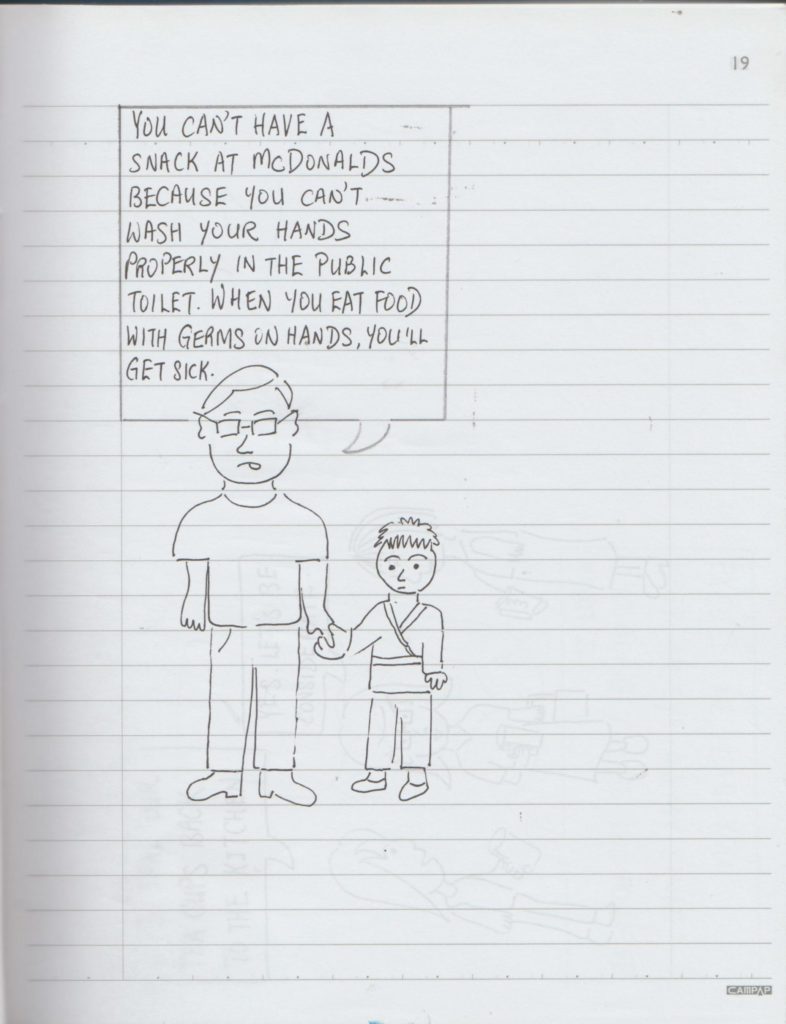 19
YOU CAN'T HAVE A
SNACK AT McDONALDS
BECAUSE YOU CAN'T
WASH YOUR HANDS
PROPERLY IN THE PUBLIC
TOILET. WHEN YOU EAT FOOD
WITH GERMS ON HANDS, YOU'LL
GET SICK.
CAMPAP